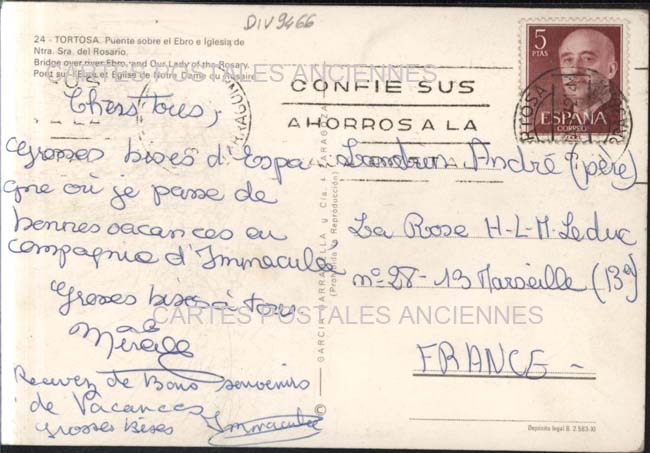 DIV9466
24 - TORTOSA. Puente sobre el Ebro e Iglesia de
Ntra. Sra. del Rosario.
Bridge over river Ebro, and Our Lady of the Rosary.
Pont sur l'Ebre et Eglise de Notre Dame du Rosaire
CARTES POSTALES ANCIENNES
CONFIE SUS
AHORROS A LA
5
PTAS
ESPAÑA
CORREOS
TORTOSA
Chers tous,
Grosses bises d'Espa
gne où je passe de
bonnes vacances en
compagnie d'Immaculée
Grosses bises à tous
Mireille
Recevez de Bons souvenirs
de Vacances
Grosses Bises Immaculée
GARCIA GARRABELLA y Cía. - ZARAGOZA
(Prohibida la Reproducción)
Landrin André (père)
La Rose H-L-M-Leduc
n°28-13 Marseille (13e)
CARTES POSTALES ANCIENNES
FRANCE-
Depósito legal B. 2.583-XI